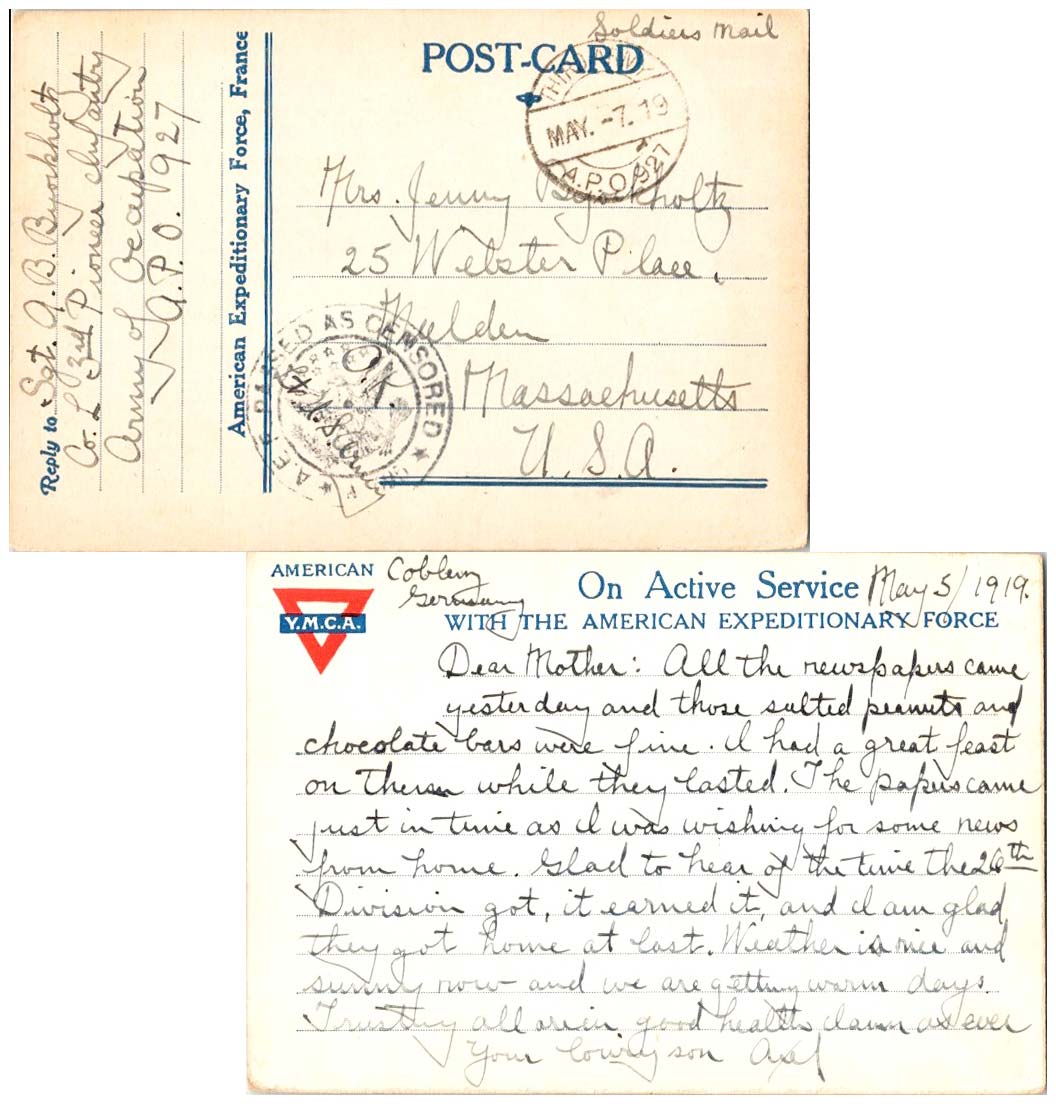 Soldiers Mail
POST-CARD
THIRD ARMY
MAY.-7.19
A.P.O. 927
Mrs. Jenny Bjorkholtz
25 Webster Place,
Malden
Massachusetts
U.S.A.
PASSED AS CENSORED
A.E.F.
O.K.
Reply to Sgt. A. B. Bjorkholtz
Co. L 3rd Pioneer Infantry
Army of Occupation
A.P.O. 927
American Expeditionary Force, France
AMERICAN
Y.M.C.A.
Coblenz
Germany
On Active Service May 5/1919.
WITH THE AMERICAN EXPEDITIONARY FORCE
Dear Mother: All the newspapers came
yesterday and those salted peanuts and
chocolate bars were fine. I had a great feast
on them while they lasted. The papers came
just in time as I was wishing for some news
from home. Glad to hear of the time the 26th
Division got, it earned it, and I am glad
they got home at last. Weather is nice and
sunny now and we are getting warm days.
Trusting all are in good health I am as ever
Your loving son Axel